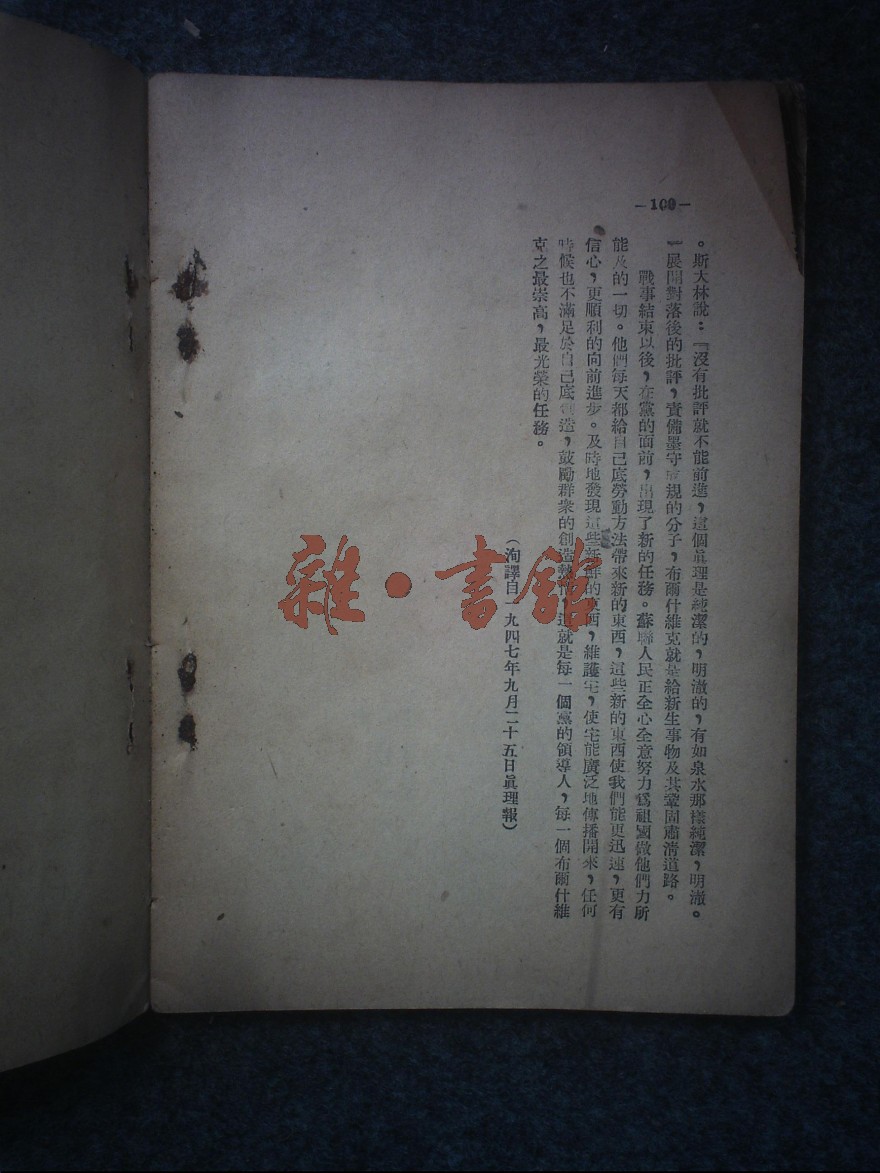 —100—
。斯大林說：『沒有批評就不能前進，這個眞理是純潔的，明澈的，有如泉水那樣純潔，明澈。
』展開對落後的批評，責備墨守成規的分子，布爾什維克就是給新生事物及其鞏固肅清道路。
戰事結束以後，在黨的面前，出現了新的任務。蘇聯人民正全心全意努力爲祖國做他們力所
能及的一切。他們每天都給自己底勞動方法帶來新的東西，這些新的東西使我們能更迅速，更有
信心，更順利的向前進步。及時地發現這些新鮮的東西，維護宅，使宅能廣泛地傳播開來，任何
時候也不滿足於自己底創造，鼓勵群衆的創造熱情，這就是每一個黨的領導人，每一個布爾什維
克之最崇高，最光榮的任務。
（洵譯自一九四七年九月二十五日眞理報）
雜·書館